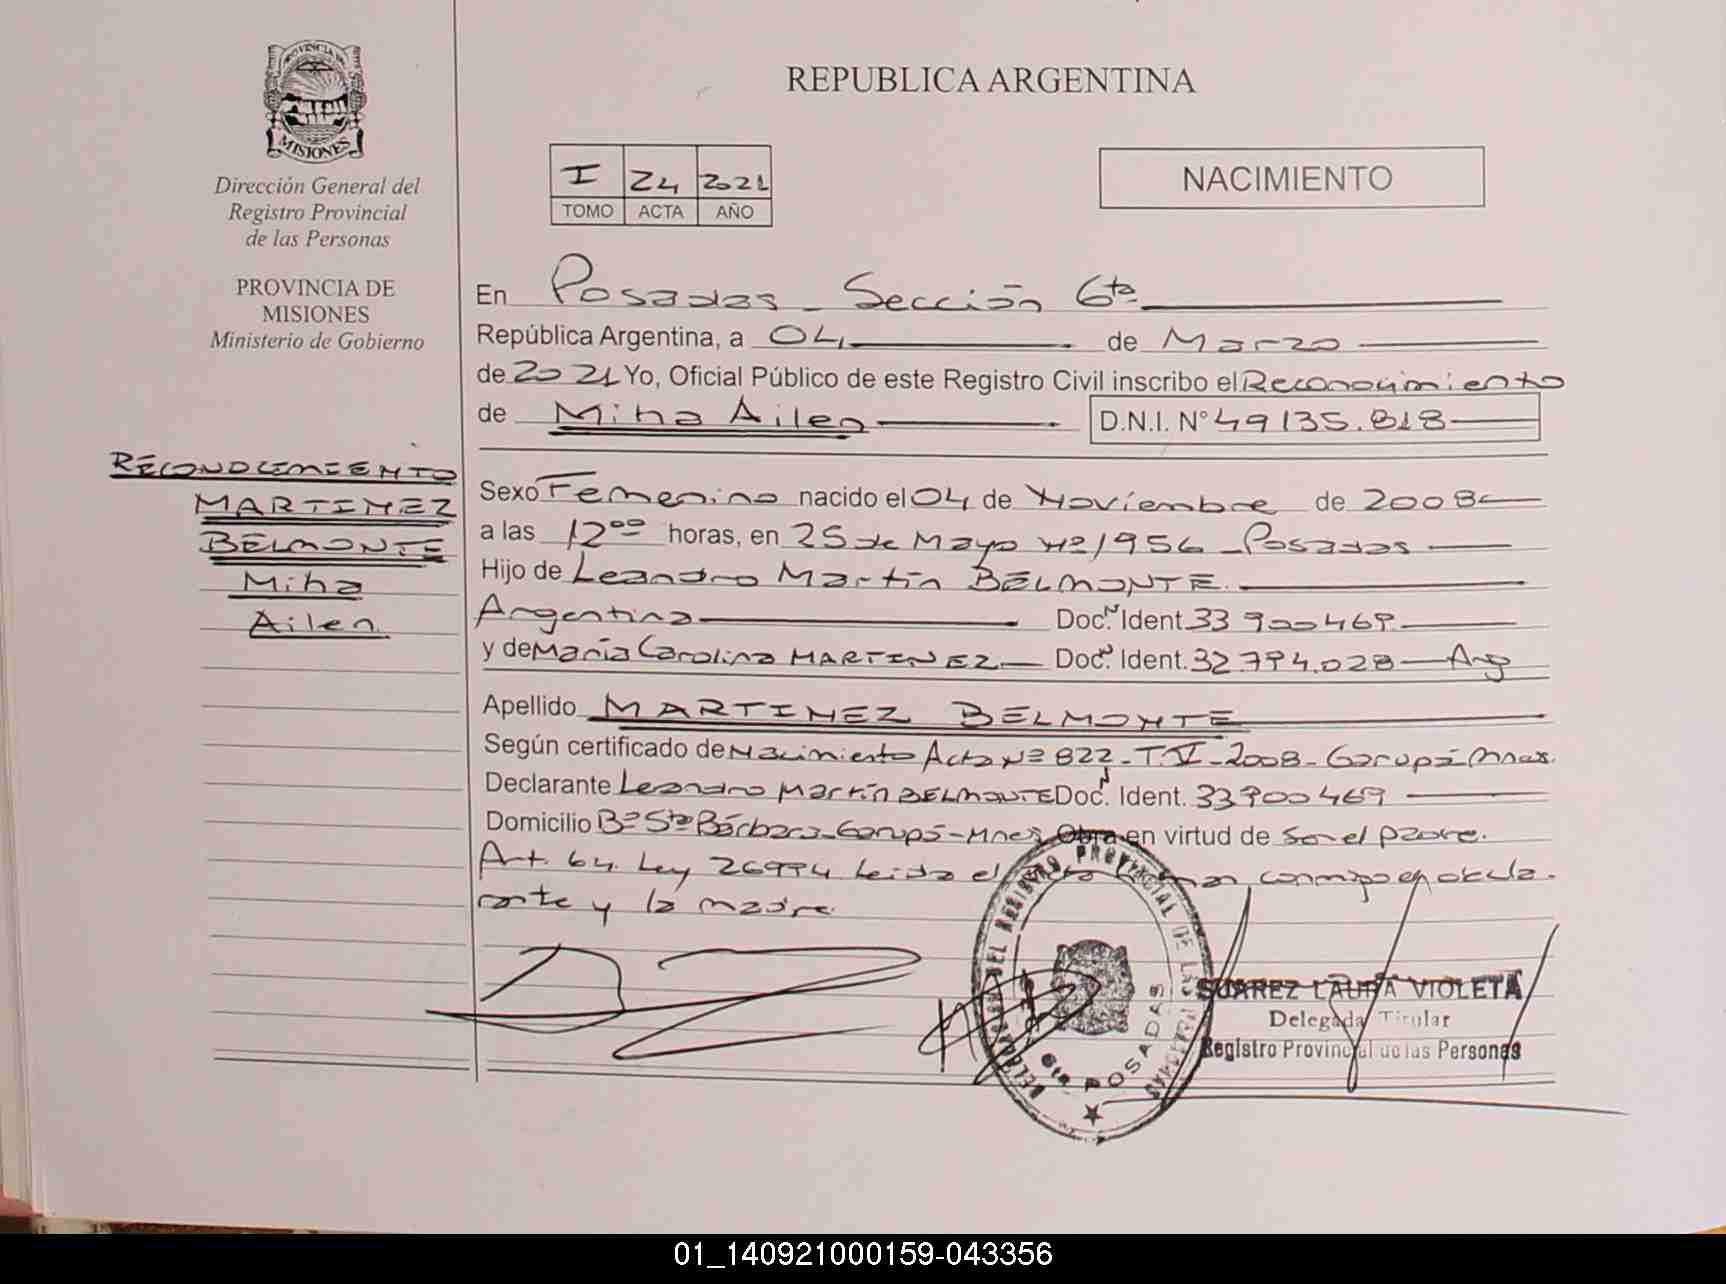 PROVINCIA DE
MISIONES
Dirección General del
Registro Provincial
de las Personas
PROVINCIA DE
MISIONES
Ministerio de Gobierno
RECONOCIMIENTO
MARTINEZ
BELMONTE
Miha
Ailen
REPUBLICA ARGENTINA
I 24 2021
TOMO ACTA AÑO
NACIMIENTO
En Posadas - Sección 6ta
República Argentina, a 04 de Marzo
de 2021 Yo, Oficial Público de este Registro Civil inscribo el Reconocimiento
de Miha Ailen D.N.I. N° 49135.818
Sexo Femenino nacido el 04 de Noviembre de 2008
a las 12oo horas, en 25 de Mayo Nº 1956 - Posadas
Hijo de Leandro Martín BELMONTE.
Argentina Docn. Ident. 33 900469
y de María Carolina MARTINEZ Docn. Ident. 32.794.028 Arg
Apellido MARTINEZ BELMONTE
Según certificado de Nacimiento Acta Nº 822 - T. V - 2008 - Garupá Mnes.
Declarante Leandro Martín BELMONTE Docn. Ident. 33900469
Domicilio Bº Sta Bárbara - Garupá - Mnes Obra en virtud de ser el padre.
Art. 64. Ley 26994 Leida el conmigo el decla-
rante y la madre.
DELEGACION DEL REGISTRO PROVINCIAL DE LAS PERSONAS
6ta POSADAS
SUAREZ LAURA VIOLETA
Delegada Titular
Registro Provincial de las Personas
01_140921000159-043356